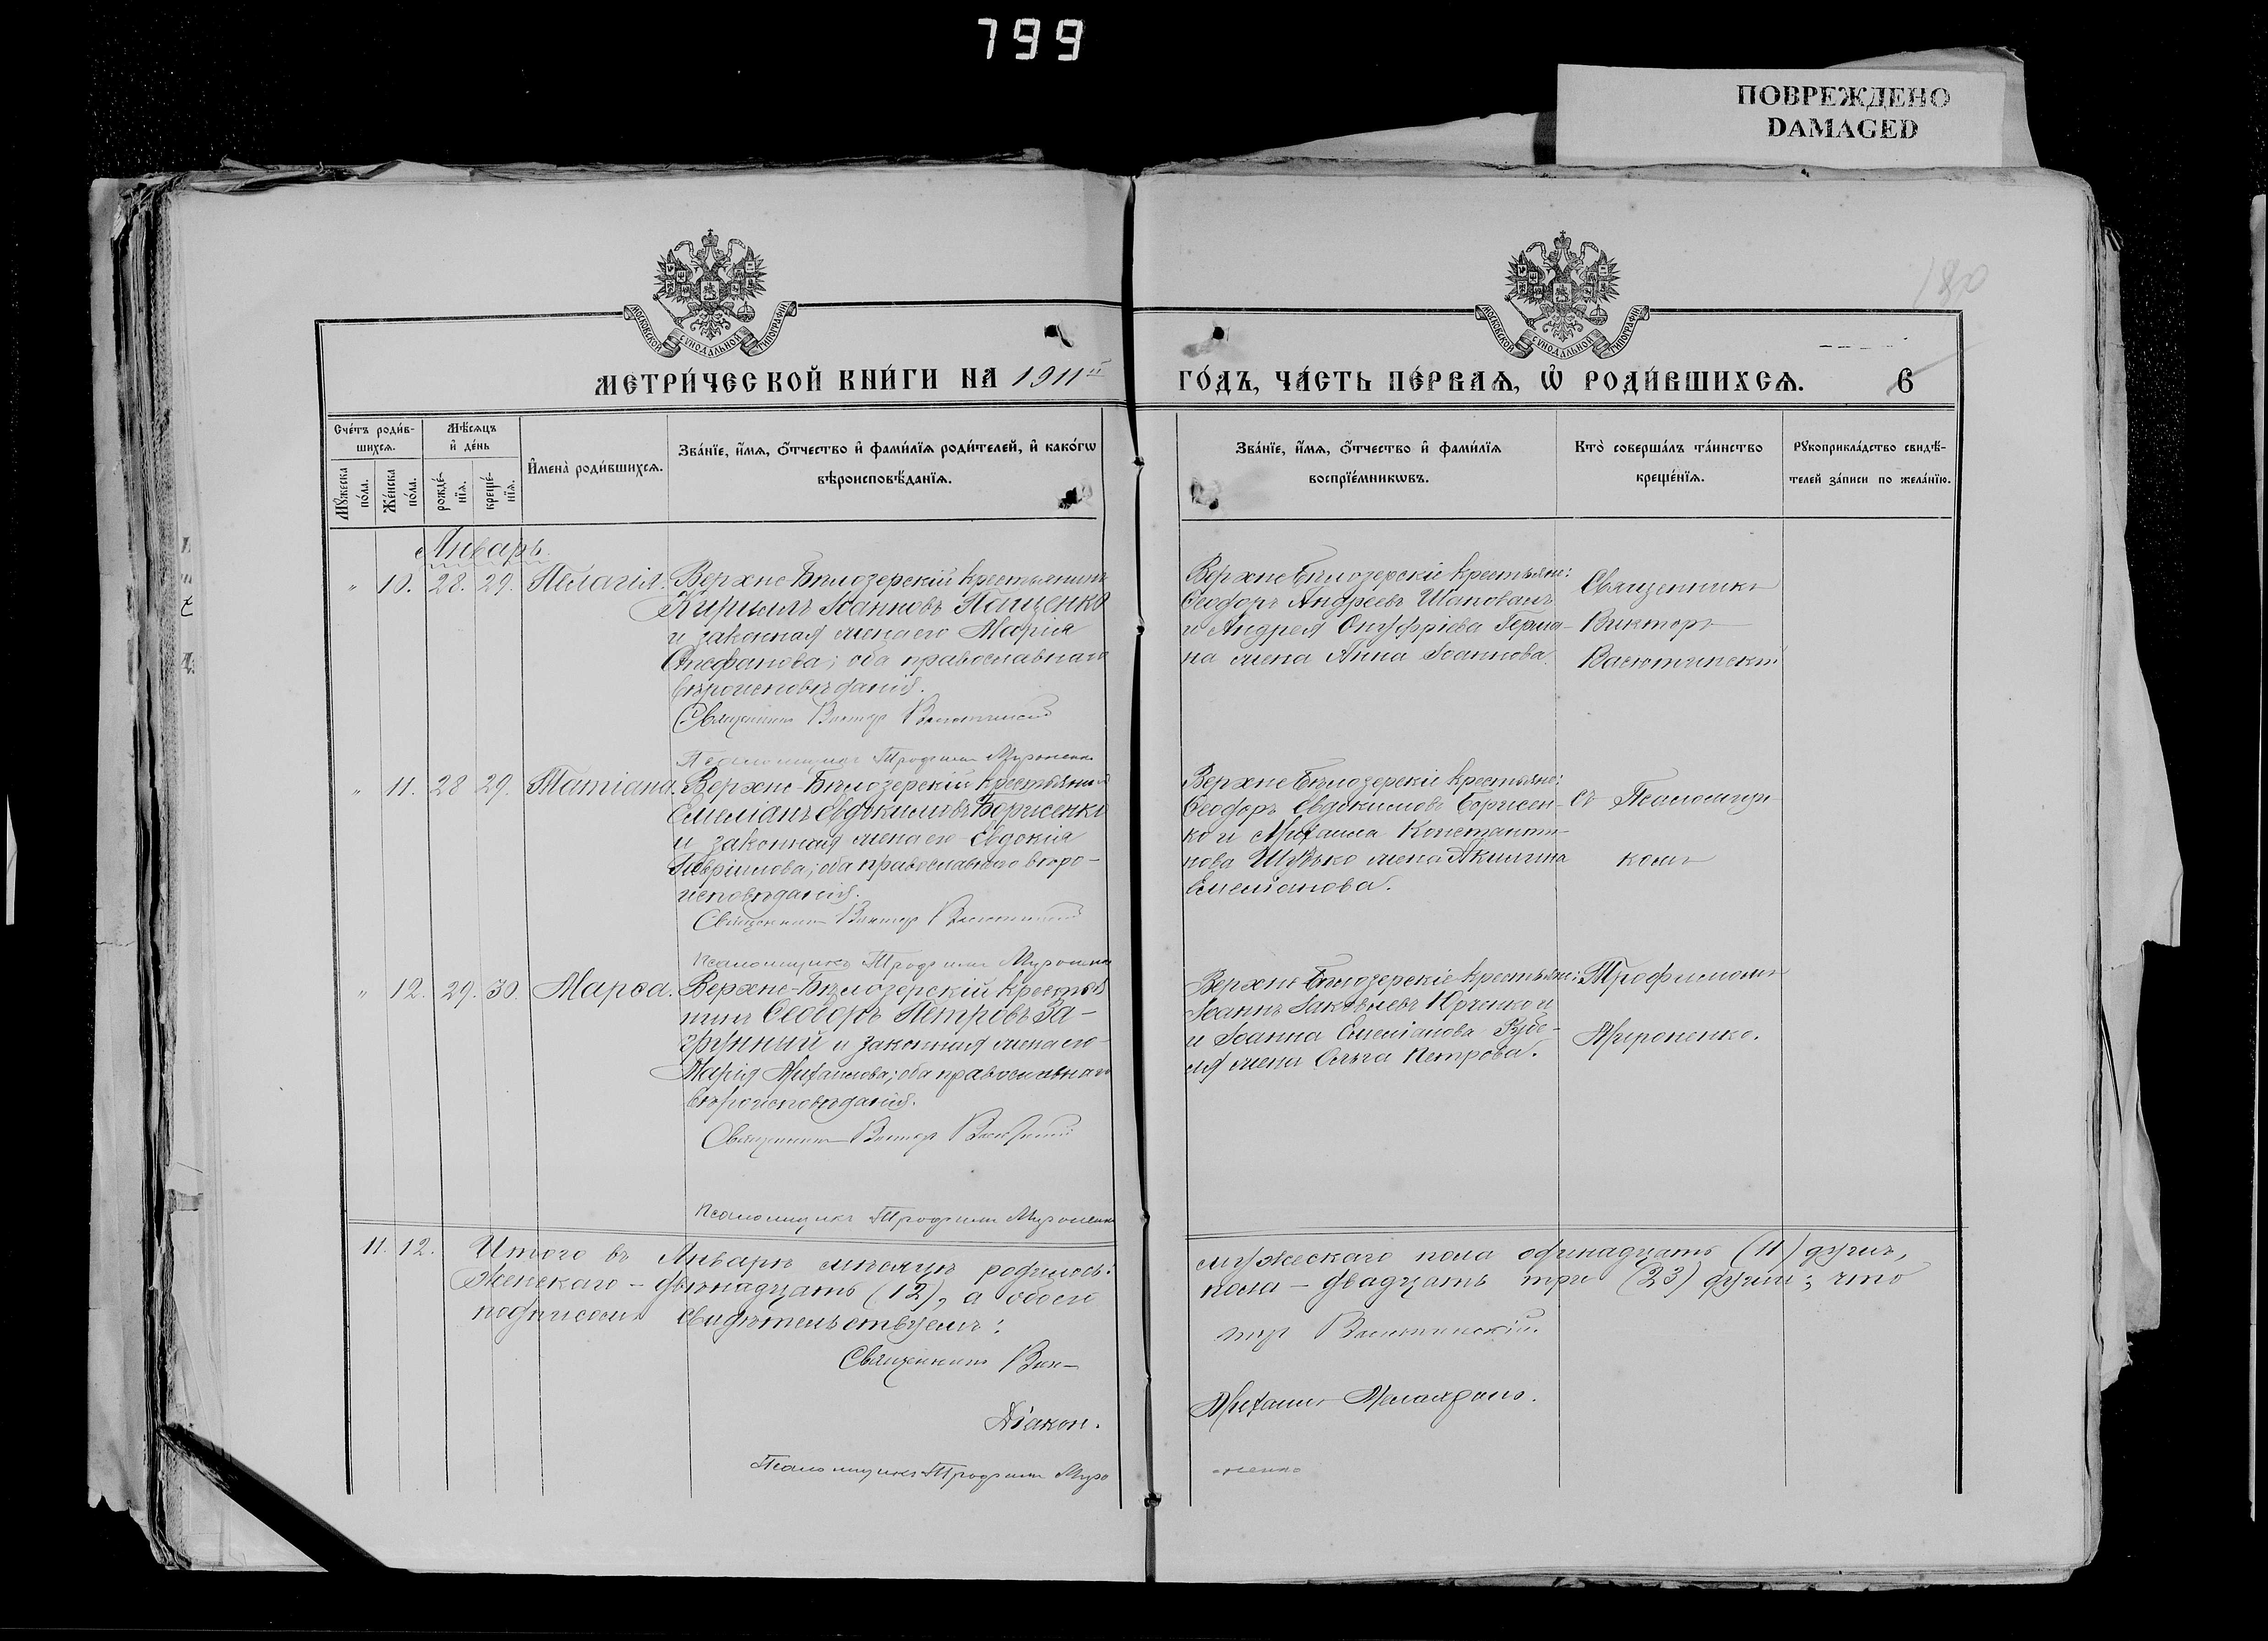 799
ПОВРЕЖДЕНО
DAMAGED
180
МОСКОВСКОЙ СУНОДАЛЬНОЙ ТИПОГРАФІИ
МОСКОВСКОЙ СУНОДАЛЬНОЙ ТИПОГРАФІИ
МЕТРИ́ЧЕСКОЙ КНИ́ГИ НА 1911й
ГО́ДЪ, ЧА́СТЬ ПЕ́РВАѦ, Ѡ҆ РОДИ́ВШИХСѦ. 6
Сче́тъ роди́в-
шихсѧ.
Мꙋ́жеска по́ла.
Же́нска по́ла.
Мѣ́сѧцъ
и҆ де́нь
рожде́-
нїѧ.
креще́-
нїѧ.
И҆мена̀ роди́вшихсѧ.
Зва́нїе, и҆́мѧ, ѻ҆́тчество и҆ фами́лїѧ роди́телей, и҆ како́гѡ
вѣроисповѣ́данїѧ.
Зва́нїе, и҆́мѧ, ѻ҆́тчество и҆ фами́лїѧ
воспрїе́мникѡвъ.
Кто̀ соверша́лъ та́инство
креще́нїѧ.
Рꙋкоприкла́дство свидѣ́-
телей за́писи по жела́нїю.
Январь.
" 10. 28. 29. Пелагія.
Верхне-Бѣлозерскій крестьянинъ
Кириллъ Іоанновъ Пащенко
и законная жена его Марія
Стефанова; оба православнаго
вѣроисповѣданія.
Священникъ Викторъ Васютинскій
Псаломщикъ Трофимъ Мироненко
Верхне Бѣлозерскіе крестьяне:
Ѳеодоръ Андреевъ Шаповалъ
и Андрея Онуфріева Герма-
на жена Анна Іоаннова.
Священникъ
Викторъ
Васютинскій
" 11. 28 29. Татіана.
Верхне-Бѣлозерскій крестьянинъ
Емеліанъ Евдокимовъ Борисенко
и законная жена его Евдокія
Гавріилова; оба православнаго вѣро-
исповѣданія.
Священникъ Викторъ Васютинскій
Псаломщикъ Трофимъ Мироненко
Верхне Бѣлозерскіе крестьяне:
Ѳеодоръ Евдокимовъ Борисен-
ко и Михаила Константи-
нова жена Акилина
Емеліанова.
съ Псаломщи-
комъ
" 12. 29. 30. Марѳа.
Верхне-Бѣлозерскій крестья
нинъ Ѳеодоръ Петровъ За-
грунный и законная жена его
Марія Михаилова; оба православнаго
вѣроисповѣданія.
Священникъ Викторъ Васютинскій
Псаломщикъ Трофимъ Мироненко
Верхне-Бѣлозерскіе крестьяне:
Іоаннъ Іаковлевъ Юрченко и
и Іоанна Емеліанова
жена Ольга Петрова.
Трофимомъ
Мироненко.
11. 12. Итого въ Январѣ мѣсяцѣ родилось: мужескаго пола одинадцать (11) душъ,
Женскаго – двѣнадцать (12), а обоего пола – двадцать три (23) души; что
подписомъ свидѣтельствуемъ:
Священникъ Вик- торъ Васютинскій.
Діакон. Михаилъ
Псаломщикъ Трофимъ Миро оненко